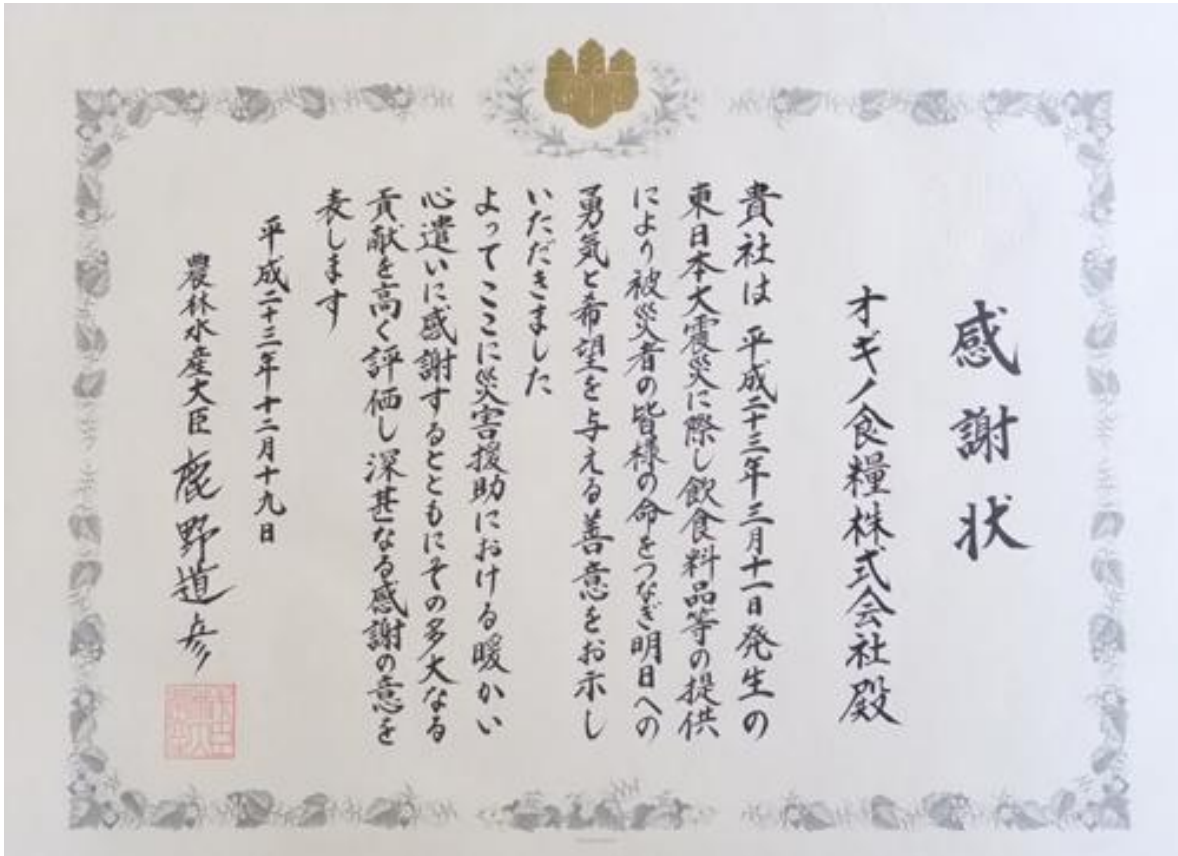 感謝状
オギノ食糧株式会社殿
貴社は 平成二十三年三月十一日発生の
東日本大震災に際し飲食料品等の提供
により被災者の皆様の命をつなぎ明日への
勇気と希望を与える善意をお示し
いただきました
よってここに災害援助における暖かい
心遣いに感謝するとともにその多大なる
貢献を高く評価し深甚なる感謝の意を
表します
平成二十三年十二月十九日
農林水産大臣 鹿野道彦